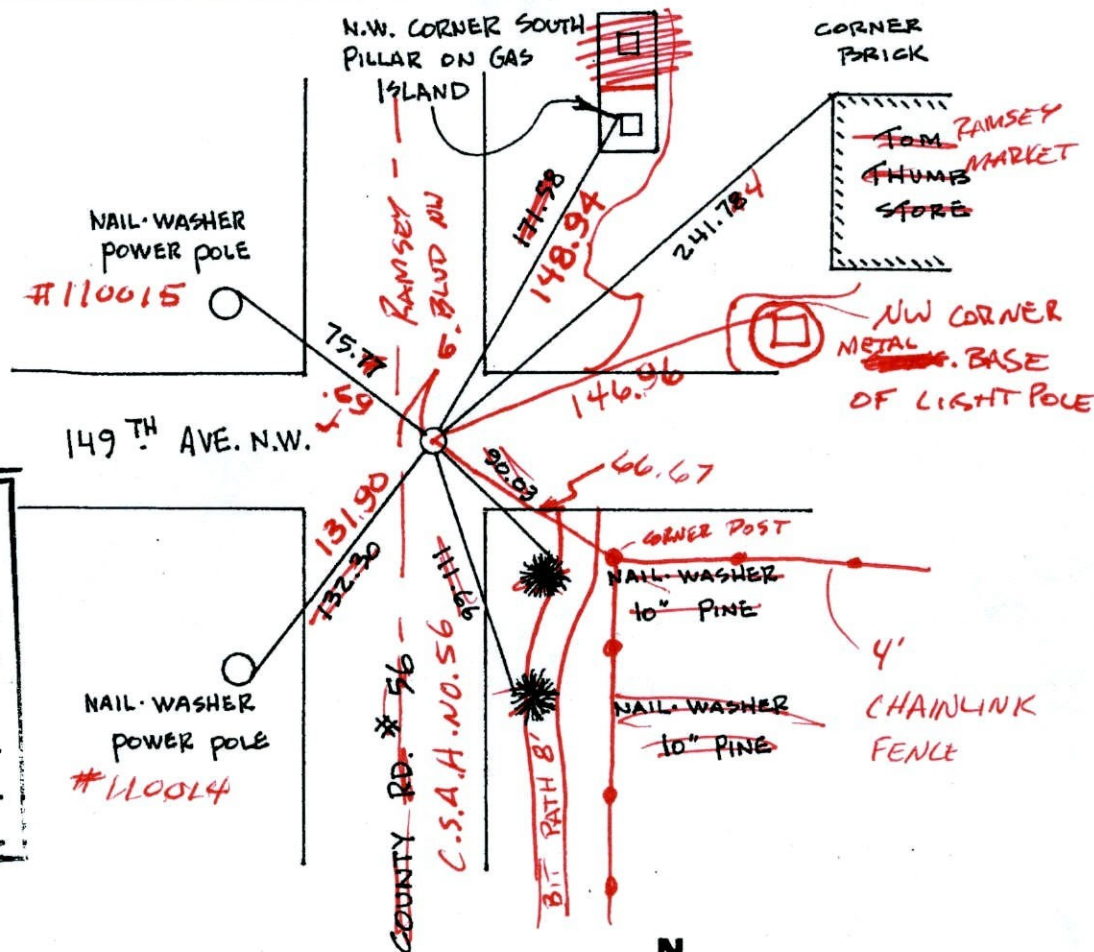 N.W. CORNER SOUTH
PILLAR ON GAS
ISLAND
CORNER
BRICK
TOM
THUMB
STORE
RAMSEY
MARKET
171.50
148.94
241.784
NAIL-WASHER
POWER POLE
#110015
75.77
.59
RAMSEY
BLVD NW
NW CORNER
METAL
BASE
OF LIGHT POLE
146.96
149TH AVE. N.W.
90.03
66.67
131.90
132.30
111.66
CORNER POST
NAIL-WASHER
10" PINE
NAIL-WASHER
10" PINE
4'
CHAINLINK
FENCE
NAIL-WASHER
POWER POLE
#110014
COUNTY RD. # 56
C.S.A.H. NO. 56
BIT PATH 8'
N